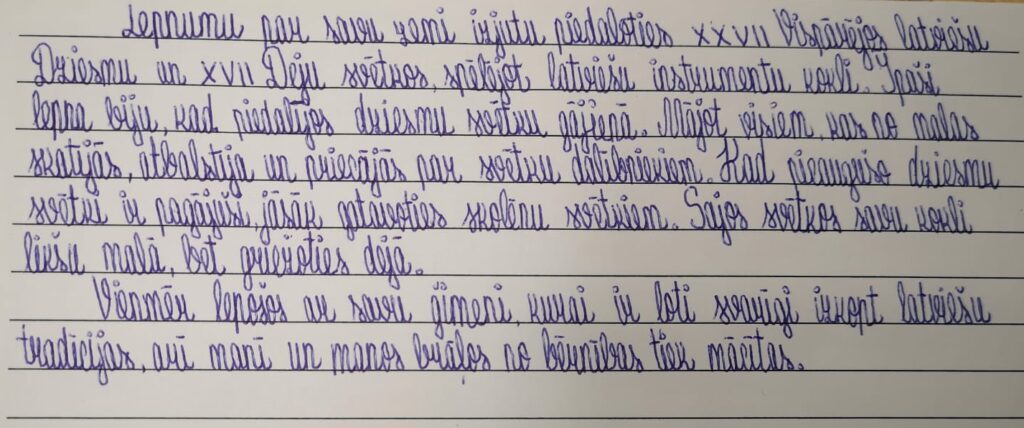 Lepnumu par savu zemi izjutu piedaloties XXVII Vispārējos latviešu
Dziesmu un XVII Deju svētkos, spēlējot latviešu instrumentu kokli. Īpaši
lepna biju, kad piedalījos dziesmu svētku gājienā. Mājot visiem, kas no malas
skatījās, atbalstīja un priecājās par svētku dalībniekiem. Kad pieaugušo dziesmu
svētki ir pagājuši, jāsāk gatavoties skolēnu svētkiem. Šajos svētkos savu kokli
likšu malā, bet griezīšos dejā.
Vienmēr lepojos ar savu ģimeni, kurai ir ļoti svarīgi izkopt latviešu
tradīcijas, arī manī un manos brāļos no bērnības tiek mācītas.